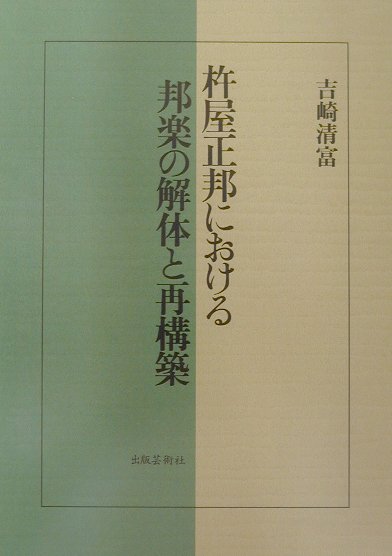 吉崎清富
杵屋正邦における
邦楽の解体と再構築
出版芸術社